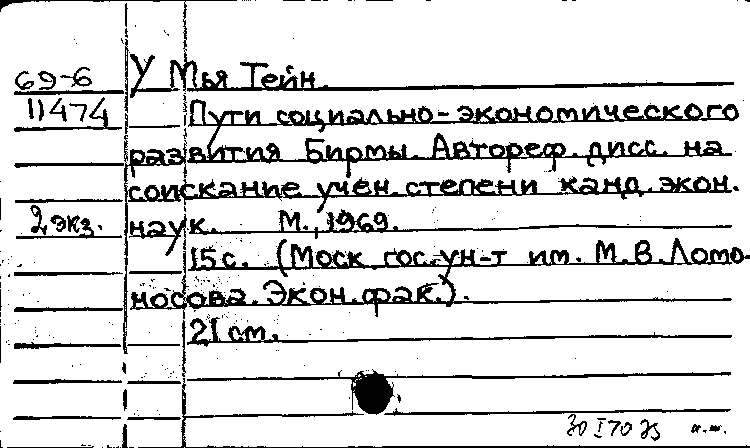 69-6 У Мья Тейн.
11474 Пути социально-экономического
развития Бирмы. Автореф. дисс. на
соискание учен. степени канд. экон.
2 экз. наук. М., 1969.
15 с. (Моск. гос. ун-т им. М.В. Ломо-
носова. Экон. фак.).
21 см.
30 I 70